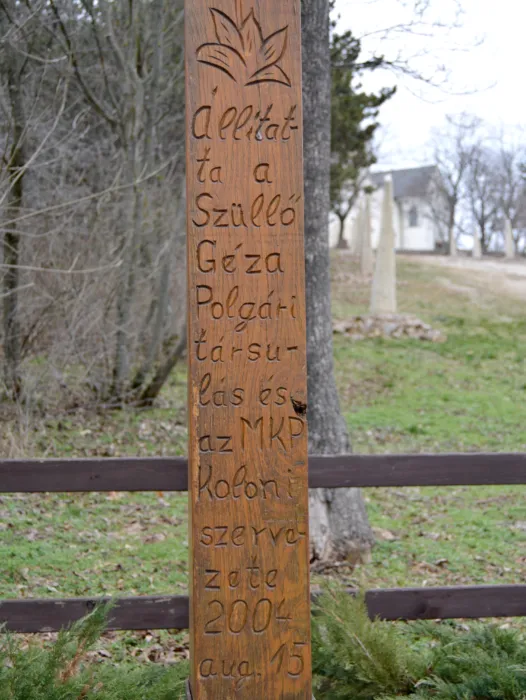 Állítat-
ta a
Szüllő
Géza
Polgári
társu-
lás és
az MKP
Koloni
szerve-
zete
2004
aug. 15